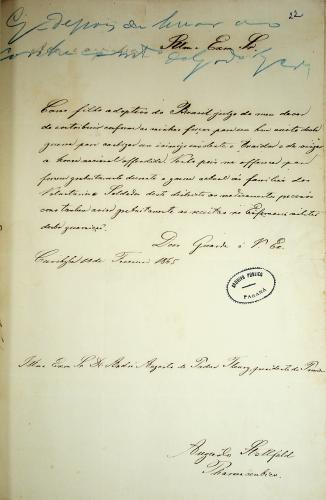 22
depois de
Illmo Exmo Sr.
Como filho adoptivo do Brasil julgo do meu dever
de contribuir conforme as minhas forças para o bom exito desta
guerra para castigar um inimigo insolente e trahidor e de vingar
a honra nacional offendida, venho pois me offerecer para
fornecer gratuitamente durante a guerra actual as familias dos
Voluntarios Soldados deste districto os medicamentos precisos
como tambem aviar gratuitamente as receitas na Enfermaria militar
desta guarnição.
Deos Guarde a Vª Exª
Curitiba de Fevereiro 1865
ARCHIVO PUBLICO
PARANÁ
Illmo Exmo Sr Dr André Augusto de Padua Fleury, presidente da
Augusto Stellfeld
Pharmaceutico